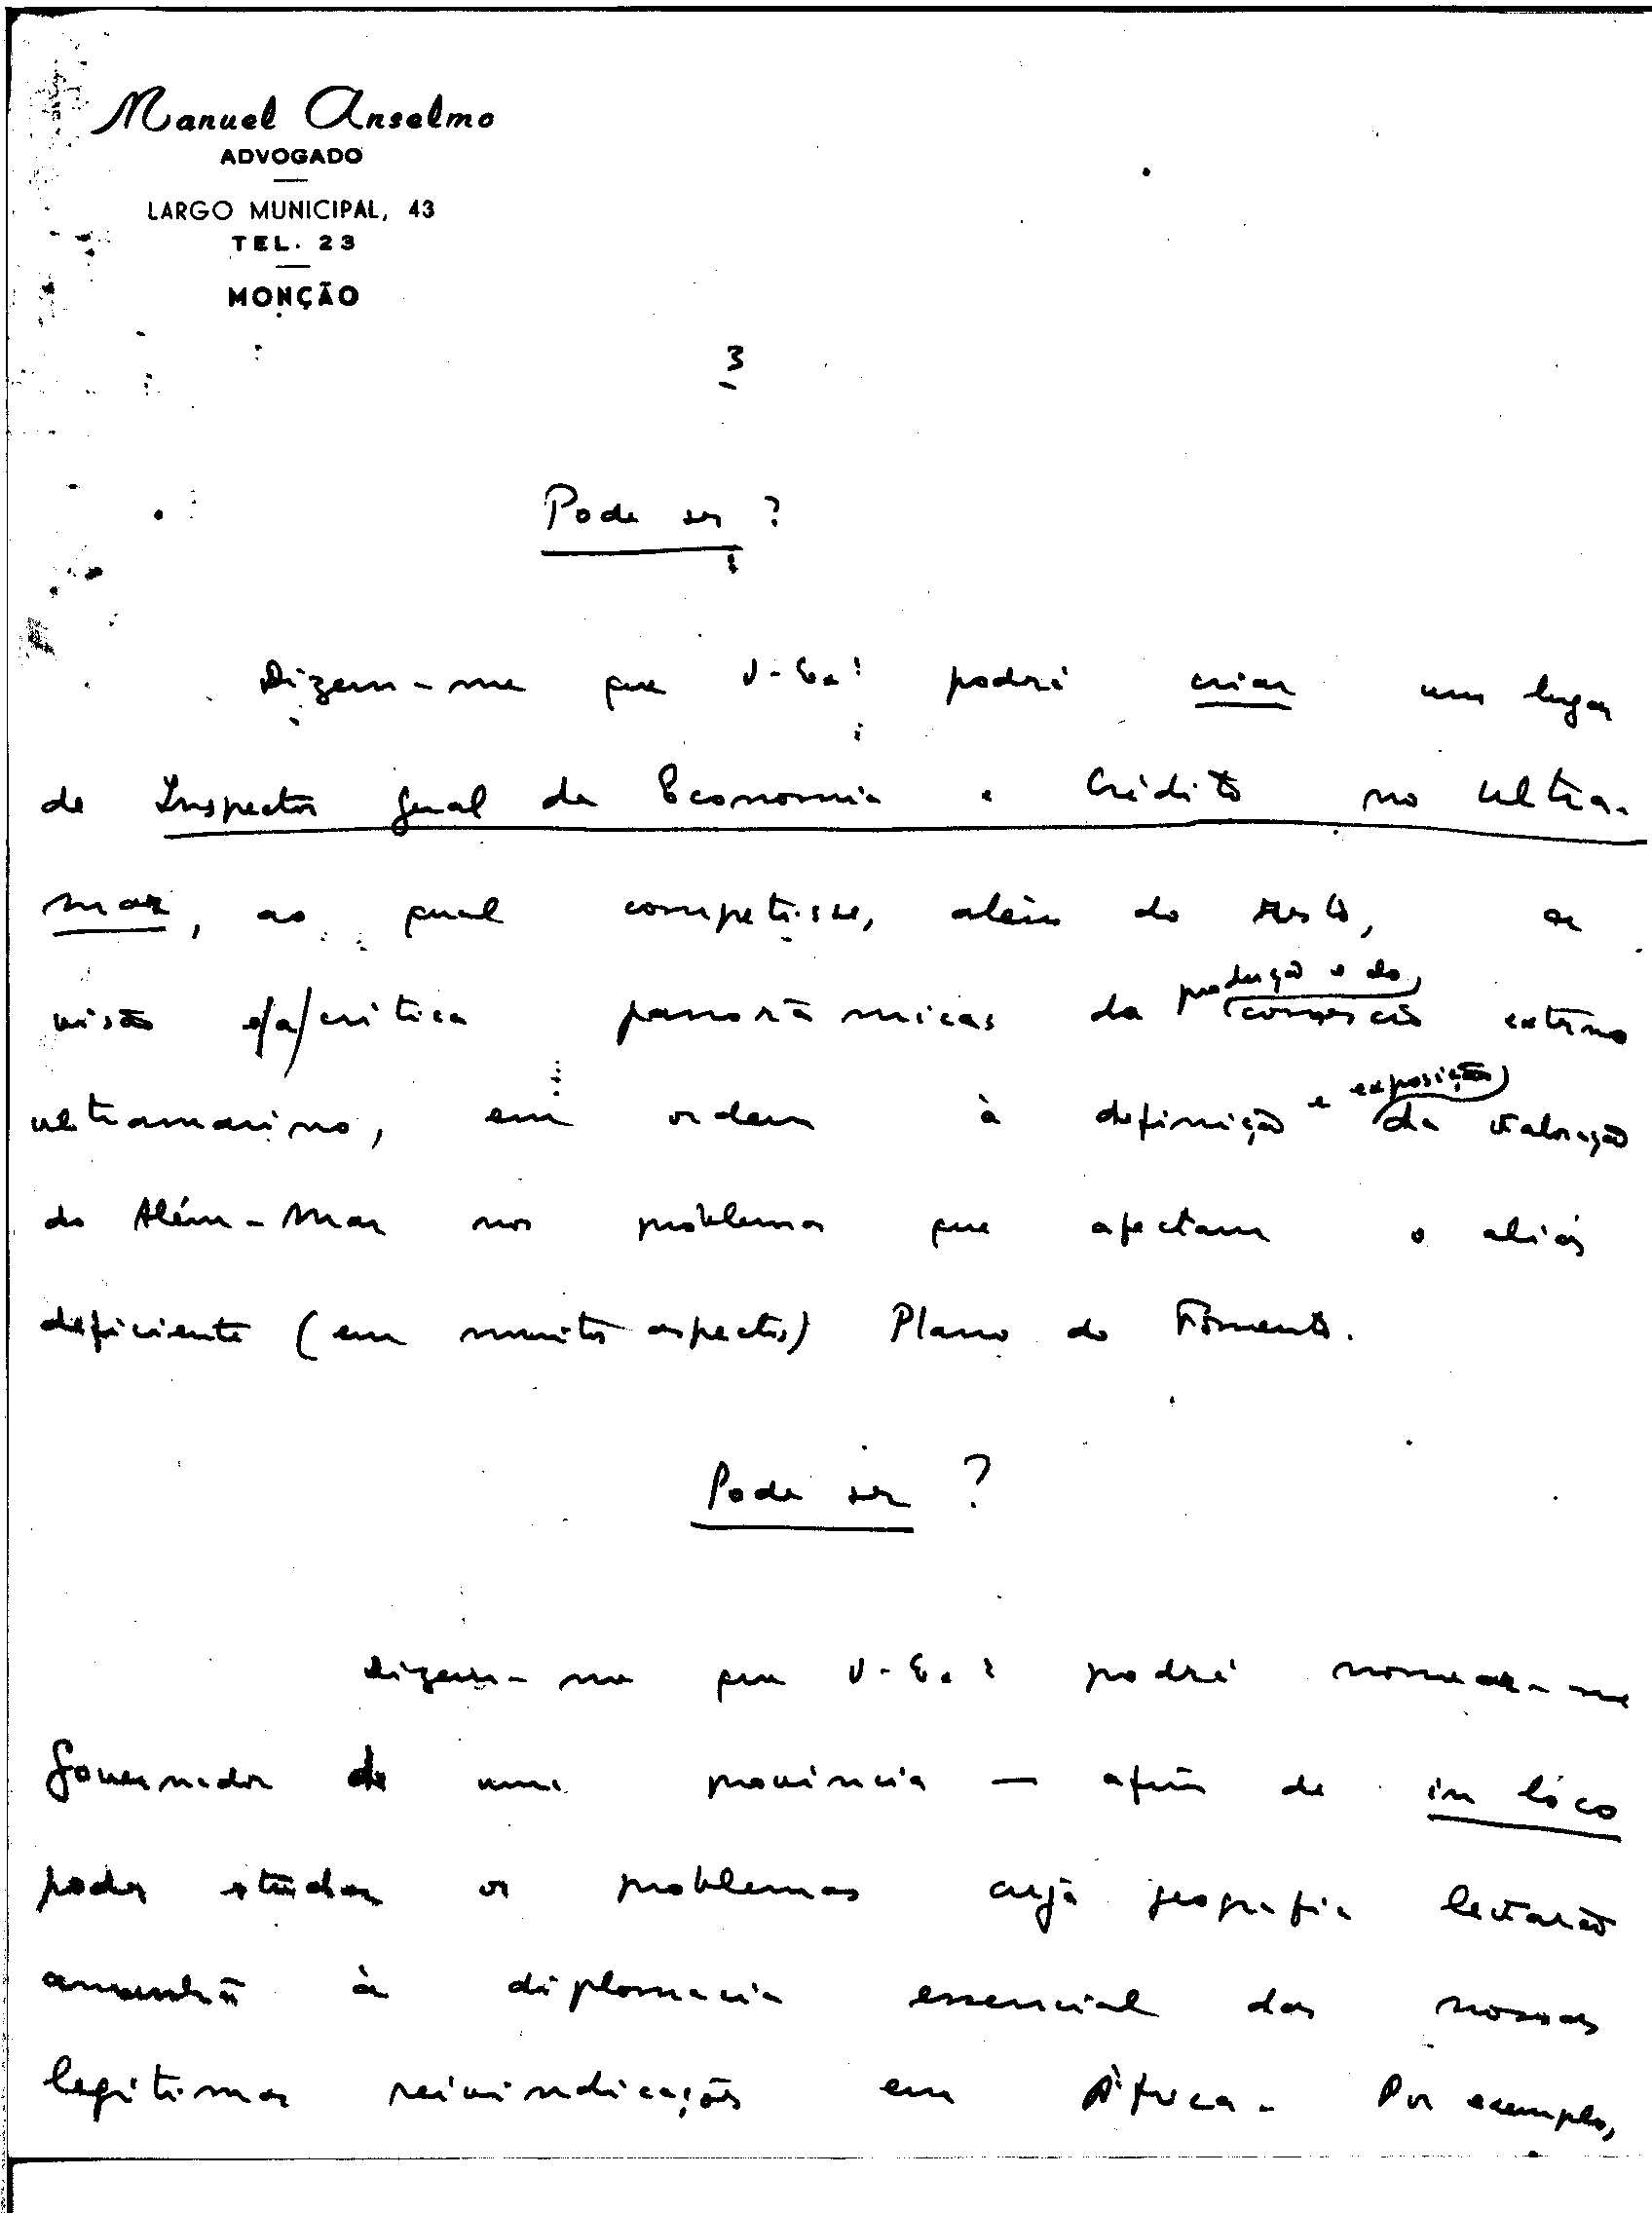 Manuel Anselmo
ADVOGADO
LARGO MUNICIPAL, 43
TEL. 23
MONÇÃO
3
Pode ser?
Dizem-me que V. Ex.ª podrá criar um lugar
de Inspector Geral da Economia e Crédito no Ultra-
mar, ao qual competisse, além do resto, a
visão e/a/crítica panorâmicas da produção e do comércio externo
ultramarino, em ordem à definição e exposição da valoração
do Além-Mar nos problemas que afectam o aliás
deficiente (em muitos aspectos) Plano do Fomento.
Pode ser?
Dizem-me que V. Ex.ª podrá nomear-me
Governador de uma provincia — afim de in lóco
poder estudar os problemas cuja geografia
amanhã à diplomacia essencial das nossas
legitimas reivindicações em África. Por exemplo,